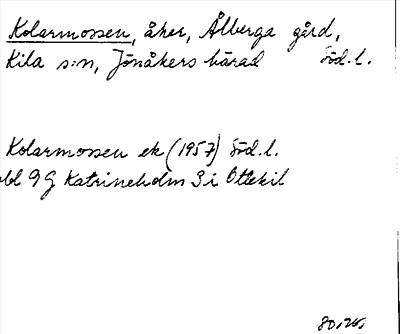 Kolarmossen, åker, Ålberga gård,
Kila s:n, Jönåkers härad Söd.l.
Kolarmossen ek (1957) Söd.l.
bl 9 G Katrineholm 3 i